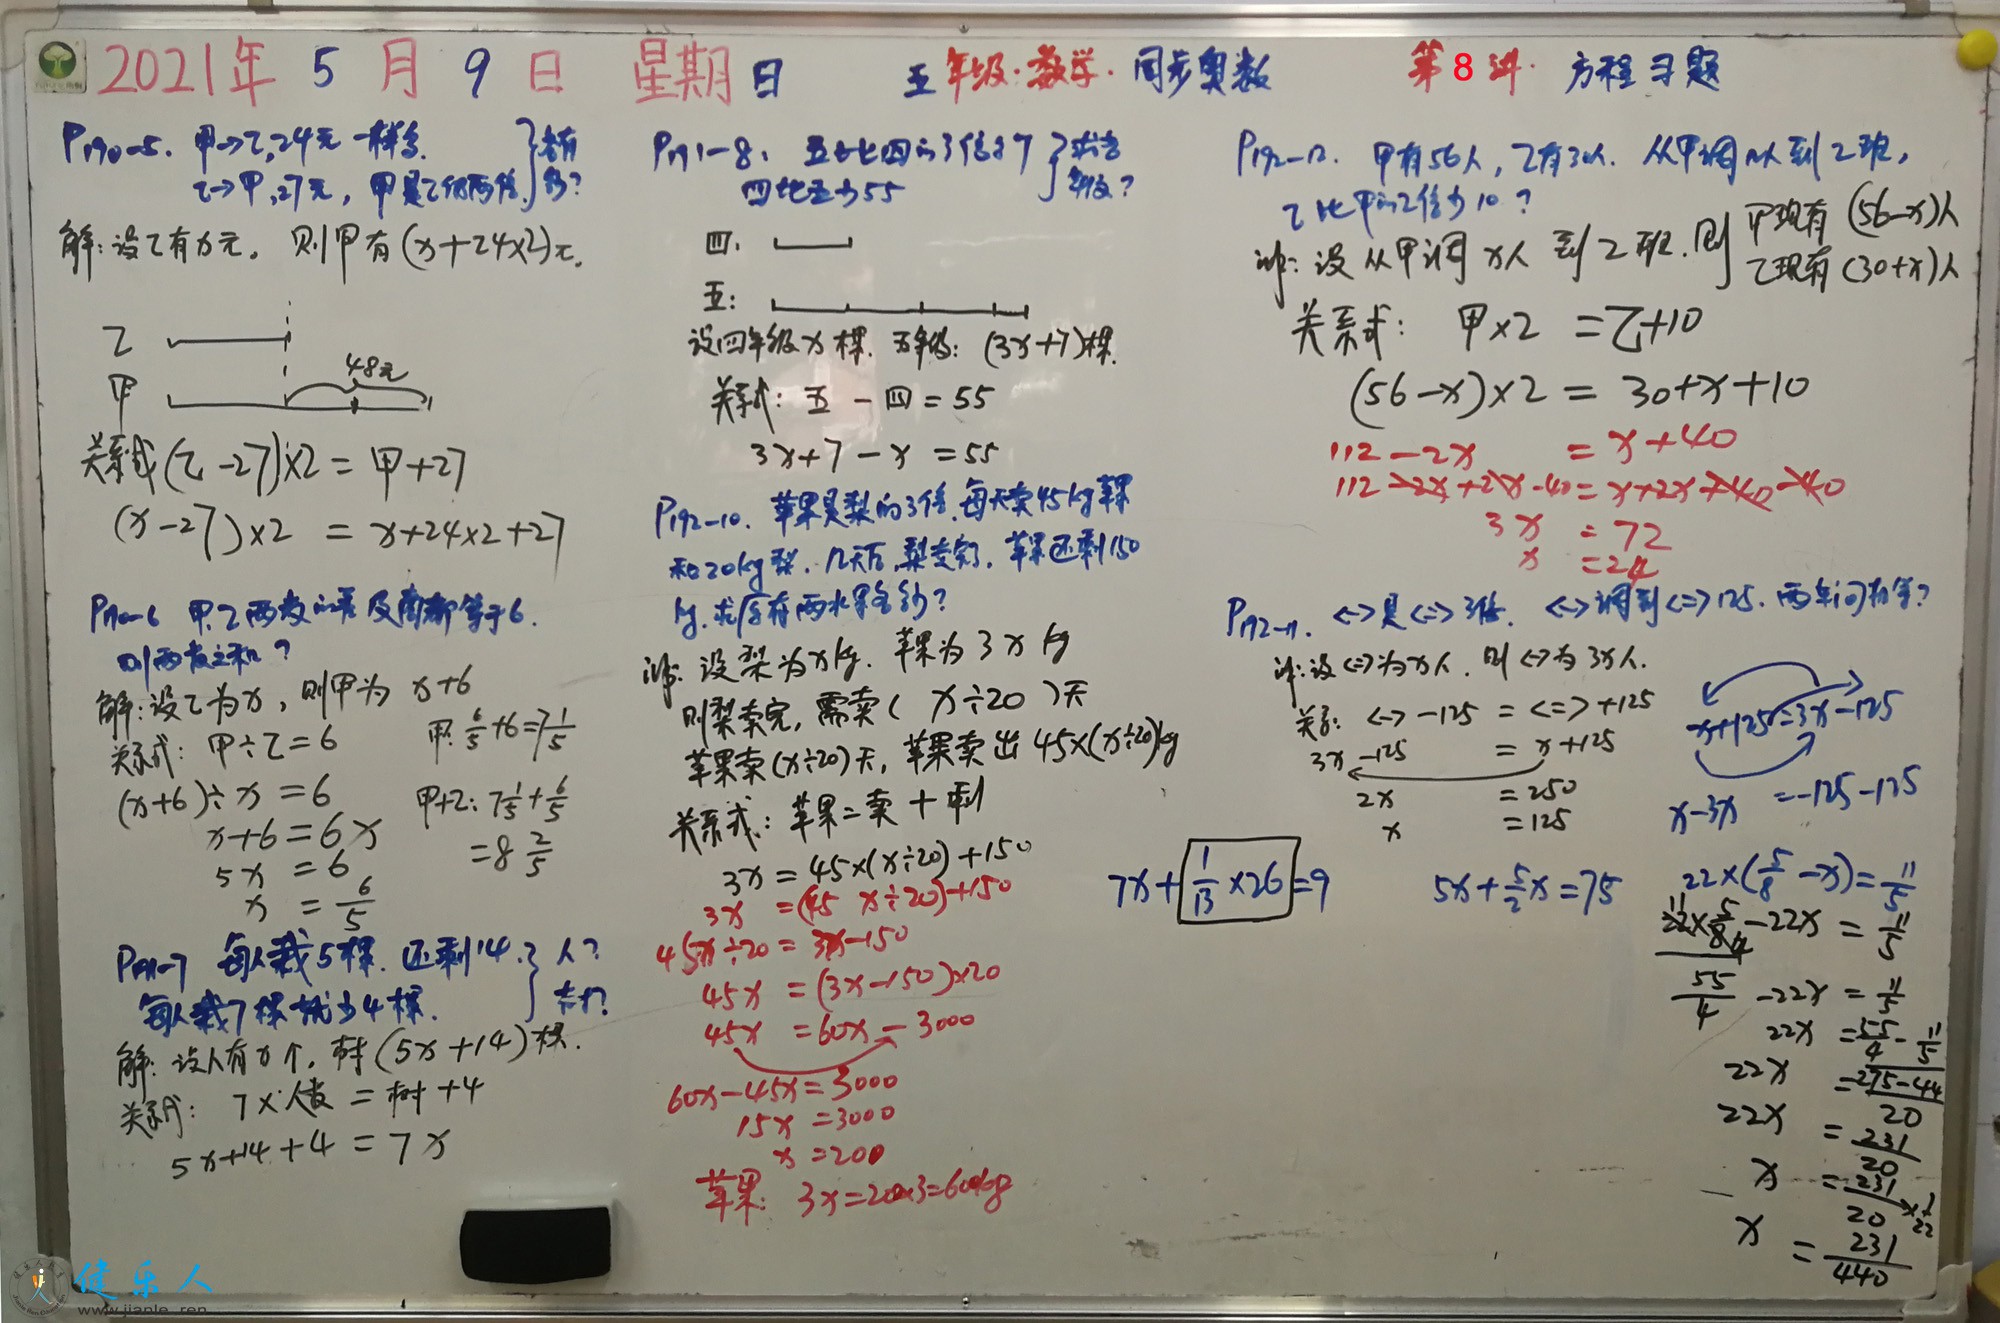 2021年 5月9日 星期日 五年级·数学·同步奥数 第8讲· 方程习题
P190-5. 甲→乙,24元一样多.
乙→甲,27元, 甲是乙的两倍. 各有多少?
解:设乙有x元。则甲有(x+24×2)元.
乙
甲 48元
关系式(乙-27)×2=甲+27
(x-27)×2 = x+24×2+27
P190-6 甲.乙两数的差及商都等于6.
则两数之和?
解:设乙为x, 则甲为 x+6
关系式: 甲÷乙=6
(x+6)÷x=6
x+6=6x
5x=6
x=6/5
甲: 6/5+6=7 1/5
甲+乙: 7 1/5+6/5
=8 2/5
P191-7 每人栽5棵. 还剩14.
每人栽7棵就少4棵. 人? 树?
解: 设人有x个, 树(5x+14)棵.
关系式: 7×人数=树+4
5x+14+4=7x
P191-8. 五比四的3倍多7
四比五少55 求各年级?
四:
五:
设四年级x棵. 五年级: (3x+7)棵.
关系式: 五-四=55
3x+7-x=55
P192-10. 苹果是梨的3倍.每天卖45kg苹果
和20kg梨. 几天后,梨卖完. 苹果还剩150
kg.求原有两水果各多少?
解: 设梨为xkg. 苹果为3xkg
则梨卖完, 需卖(x÷20)天
苹果卖(x÷20)天, 苹果卖出45×(x÷20)kg
关系式: 苹果=卖+剩
3x=45×(x÷20)+150
3x=(45x÷20)+150
45x÷20=3x-150
45x=(3x-150)×20
45x=60x-3000
60x-45x=3000
15x=3000
x=200
苹果: 3x=200×3=600kg
P192-12. 甲有56人, 乙有30人. 从甲调?人到乙班,
乙比甲的2倍少10?
解: 设从甲调x人到乙班.则 甲现有(56-x)人
乙现有(30+x)人
关系式: 甲×2=乙+10
(56-x)×2=30+x+10
112-2x=x+40
112-2x+2x-40=x+2x+40-40
3x=72
x=24
P192-11. <->是<=>3倍. <->调到<=>125. 两车间相等?
解:设<=>为x人. 则<->为3x人.
关系: <->-125=<=>+125
3x-125=x+125
2x=250
x=125
x+125=3x-125
x-3x=-125-125
7x+1/13×26=9
5x+5/2x=75
22×(5/8-x)=11/5
22×5/8-22x=11/5
55/4-22x=11/5
22x=55/4-11/5
22x=275-44/20
22x=231/20
x=231/20×1/22
x=231/440
健乐人
www.jianle.ren